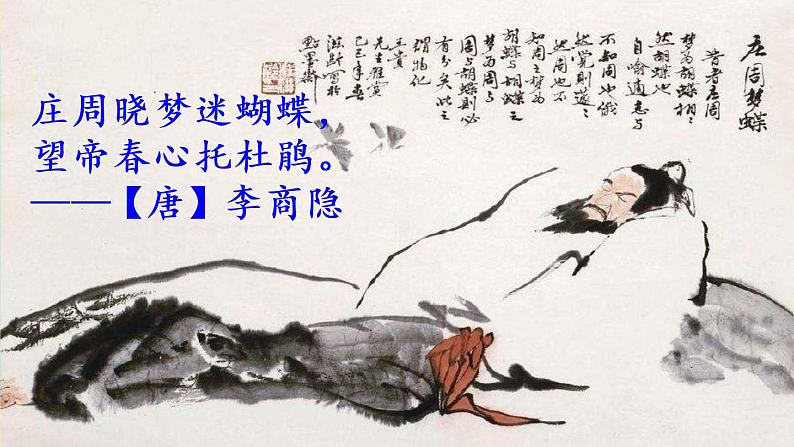 庄周晓梦迷蝴蝶，
望帝春心托杜鹃。
——【唐】李商隐
庄周梦蝶
昔者庄周
梦为胡蝶栩栩
然胡蝶也
自喻適志与
不知周也俄
然觉则蘧蘧
然周也不
知周之梦为
胡蝶与胡蝶之
梦为周与
周与胡蝶则必
有分矣此之
谓物化